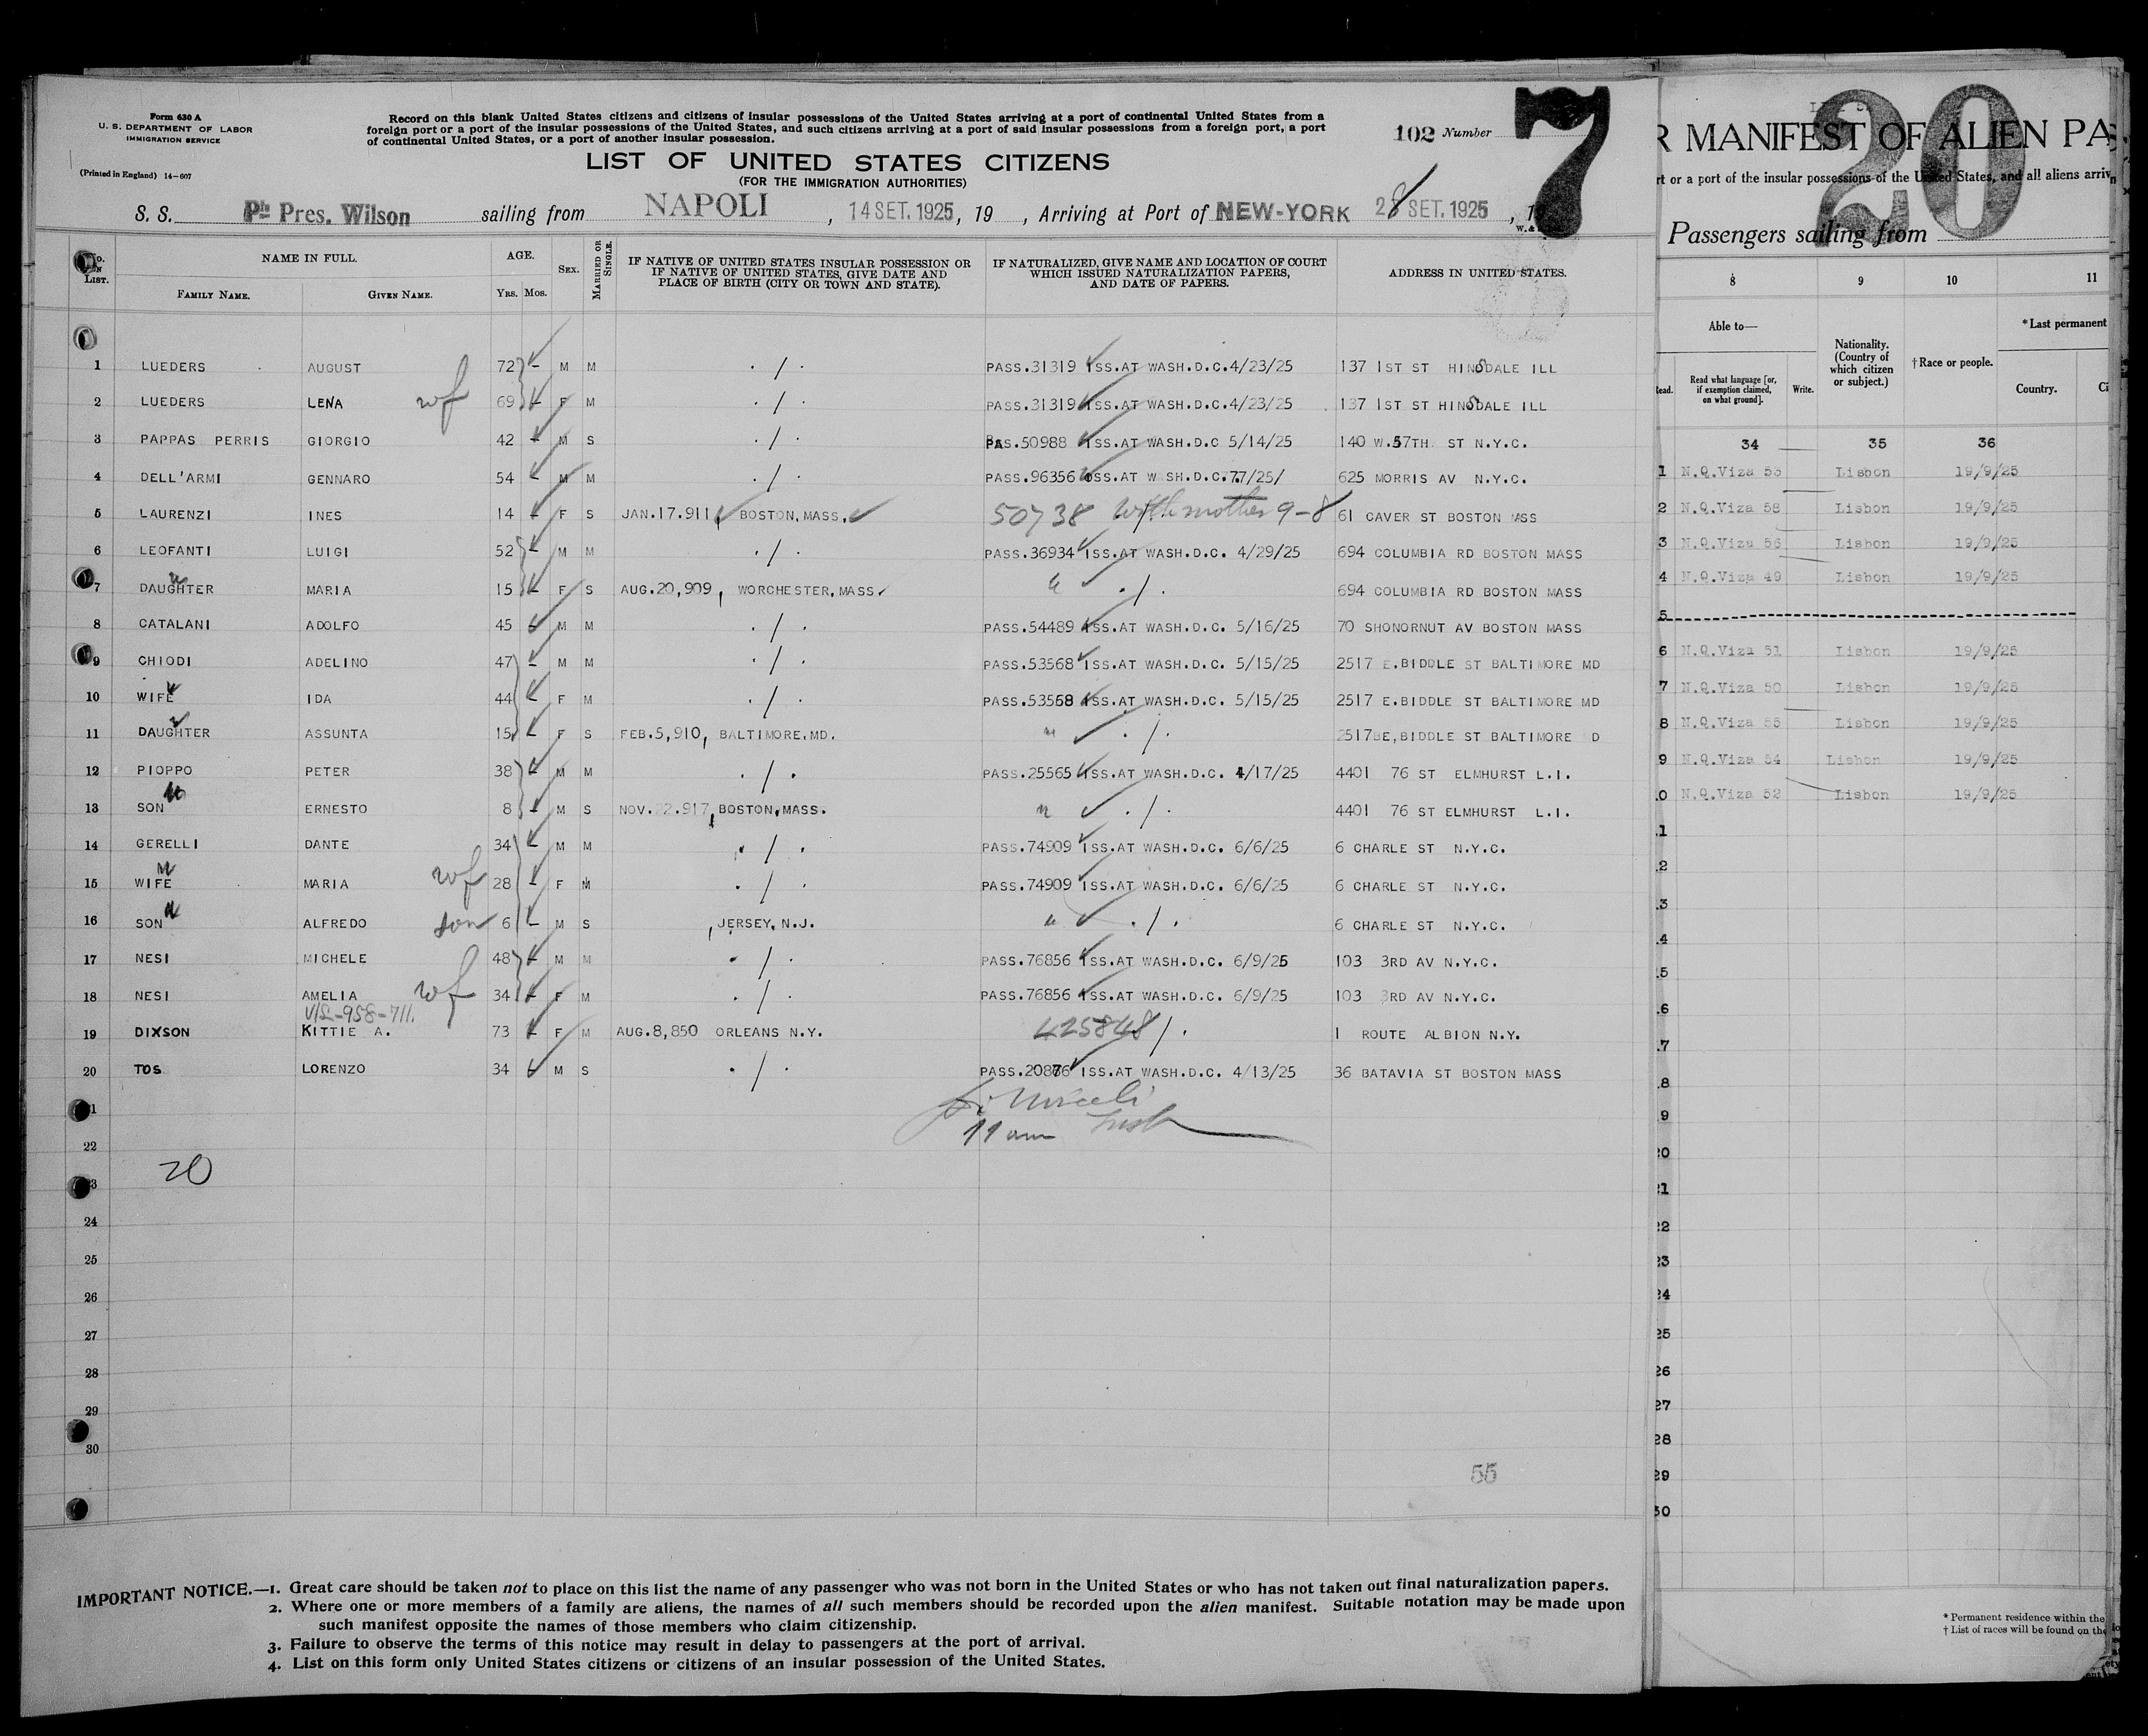 Form 630 A
U. S. DEPARTMENT OF LABOR
IMMIGRATION SERVICE
(Printed in England) 14—607
Record on this blank United States citizens and citizens of insular possessions of the United States arriving at a port of continental United States from a
foreign port or a port of the insular possessions of the United States, and such citizens arriving at a port of said insular possessions from a foreign port, a port
of continental United States, or a port of another insular possession.
102 Number 7
LIST OF UNITED STATES CITIZENS
(FOR THE IMMIGRATION AUTHORITIES)
S. S. Pfo Pres. Wilson sailing from NAPOLI, 14 SET. 1925, 19 , Arriving at Port of NEW-YORK 28 SET. 1925, 19
NAME IN FULL. AGE. SEX. MARRIED OR SINGLE. IF NATIVE OF UNITED STATES INSULAR POSSESSION OR IF NATIVE OF UNITED STATES, GIVE DATE AND PLACE OF BIRTH (CITY OR TOWN AND STATE). IF NATURALIZED, GIVE NAME AND LOCATION OF COURT WHICH ISSUED NATURALIZATION PAPERS, AND DATE OF PAPERS. ADDRESS IN UNITED STATES.
LIST. FAMILY NAME. GIVEN NAME. YRS. MOS.
1 LUEDERS AUGUST 72 - M M ./. PASS.31319 ISS.AT WASH.D.C.4/23/25 137 1ST ST HINSDALE ILL
2 LUEDERS LENA wf 69 - F M ./. PASS.31319 ISS.AT WASH.D.C.4/23/25 137 1ST ST HINSDALE ILL
3 PAPPAS PERRIS GIORGIO 42 - M S ./. PAS.50988 ISS.AT WASH.D.C 5/14/25 140 W.57TH ST N.Y.C.
4 DELL'ARMI GENNARO 54 - M M ./. PASS.96356 ISS.AT W SH.D.C.77/25/ 625 MORRIS AV N.Y.C.
5 LAURENZI INES 14 - F S JAN.17.911, BOSTON,MASS. 50738 with mother 9-8 61 CAVER ST BOSTON MSS
6 LEOFANTI LUIGI 52 - M M ./. PASS.36934 ISS.AT WASH.D.C. 4/29/25 694 COLUMBIA RD BOSTON MASS
7 DAUGHTER MARIA 15 - F S AUG.20,909, WORCHESTER,MASS. " ./. 694 COLUMBIA RD BOSTON MASS
8 CATALANI ADOLFO 45 - M M ./. PASS.54489 ISS.AT WASH.D.C. 5/16/25 70 SHONORNUT AV BOSTON MASS
9 CHIODI ADELINO 47 - M M ./. PASS.53568 ISS.AT WASH.D.C. 5/15/25 2517 E.BIDDLE ST BALTIMORE MD
10 WIFE IDA 44 - F M ./. PASS.53568 ISS.AT WASH.D.C. 5/15/25 2517 E.BIDDLE ST BALTIMORE MD
11 DAUGHTER ASSUNTA 15 - F S FEB.5,910, BALTIMORE.MD. " ./. 2517BE,BIDDLE ST BALTIMORE D
12 PIOPPO PETER 38 - M M ./. PASS.25565 ISS.AT WASH.D.C. 4/17/25 4401 76 ST ELMHURST L.I.
13 SON ERNESTO 8 - M S NOV.22.917, BOSTON,MASS. " ./. 4401 76 ST ELMHURST L.I.
14 GERELLI DANTE 34 - M M ./. PASS.74909 ISS.AT WASH.D.C. 6/6/25 6 CHARLE ST N.Y.C.
15 WIFE MARIA wf 28 - F M ./. PASS.74909 ISS.AT WASH.D.C. 6/6/25 6 CHARLE ST N.Y.C.
16 SON ALFREDO son 6 - M S , JERSEY, N.J. " ./. 6 CHARLE ST N.Y.C.
17 NESI MICHELE 48 - M M ./. PASS.76856 ISS.AT WASH.D.C. 6/9/25 103 3RD AV N.Y.C.
18 NESI AMELIA wf 34 - F M ./. PASS.76856 ISS.AT WASH.D.C. 6/9/25 103 3RD AV N.Y.C.
V/L-958-711.
19 DIXSON KITTIE A. 73 - F M AUG.8,850 ORLEANS N.Y. 425848 /. 1 ROUTE ALBION N.Y.
20 TOS LORENZO 34 - M S ./. PASS.20876 ISS.AT WASH.D.C. 4/13/25 36 BATAVIA ST BOSTON MASS
11 am
22
20
24
25
26
27
28
29
30
55
IMPORTANT NOTICE.—1. Great care should be taken not to place on this list the name of any passenger who was not born in the United States or who has not taken out final naturalization papers.
2. Where one or more members of a family are aliens, the names of all such members should be recorded upon the alien manifest. Suitable notation may be made upon
such manifest opposite the names of those members who claim citizenship.
3. Failure to observe the terms of this notice may result in delay to passengers at the port of arrival.
4. List on this form only United States citizens or citizens of an insular possession of the United States.
20
R MANIFEST OF ALIEN PA
rt or a port of the insular possessions of the United States, and all aliens arriv
Passengers sailing from
8 9 10 11
Able to— Nationality. (Country of which citizen or subject.) †Race or people. *Last permanent
Read. Read what language [or, if exemption claimed, on what ground]. Write. Country. Ci
34 35 36
1 N.Q.Viza 53 Lisbon 19/9/25
2 N.Q.Viza 58 Lisbon 19/9/25
3 N.Q.Viza 56 Lisbon 19/9/25
4 N.Q.Viza 49 Lisbon 19/9/25
5
6 N.Q.Viza 51 Lisbon 19/9/25
7 N.Q.Viza 50 Lisbon 19/9/25
8 N.Q.Viza 55 Lisbon 19/9/25
9 N.Q.Viza 54 Lisbon 19/9/25
10 N.Q.Viza 52 Lisbon 19/9/25
.1
.2
.3
.4
.5
.6
.7
.8
9
20
21
22
23
24
25
26
27
28
29
30
* Permanent residence within the
† List of races will be found on the